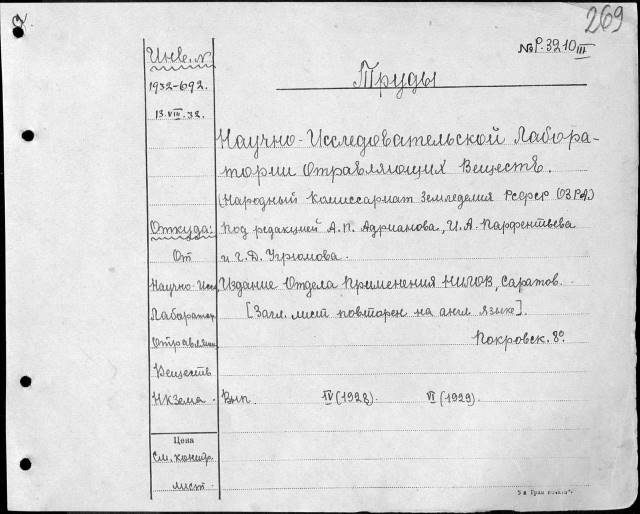 269
№ Р. 3210 III
Инв. №
1932-692.
13.VIII.32.
Труды
Научно-Исследовательской Лабора-
тории Отравляющих Веществ.
(Народный Комиссариат Земледелия РСФСР (ОЗРА)
Откуда:
Под редакцией А.П. Адрианова, И.А. Парфентьева
От
и Г.Д. Угрюмова.
Научно-Иссл
Издание Отдела Применения НИЛОВ, Саратов.
Лаборатор
[Загл. лист повторен на англ языке].
Отравляющ
Покровск. 8º.
Веществ
Нкзема.
Вып. IV (1928) VI (1929).
Цена
См. конир.
лист.